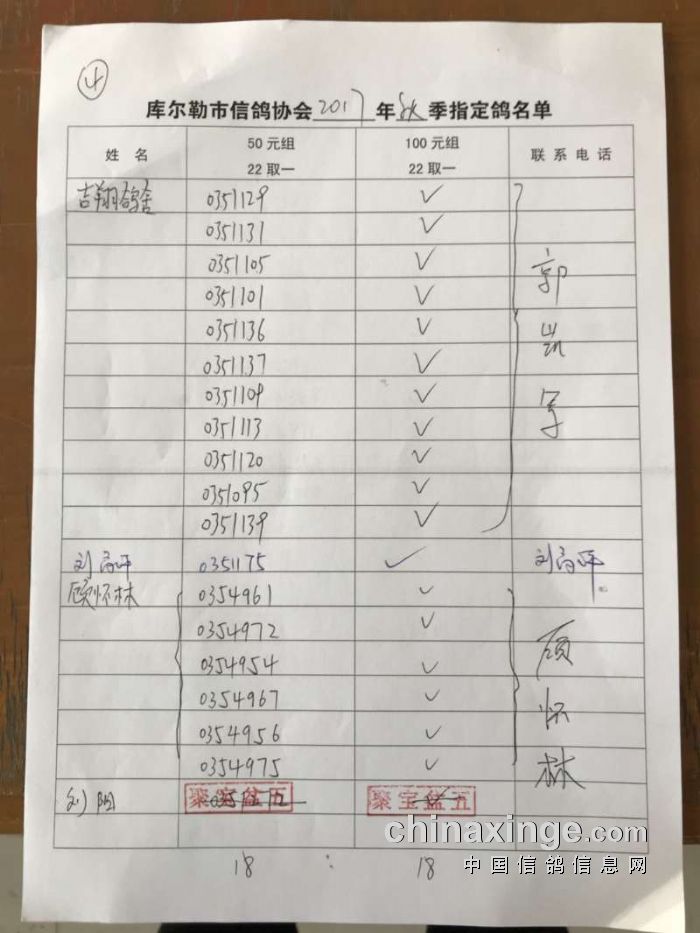 4
库尔勒市信鸽协会2017年秋季指定鸽名单
姓 名 50元组 22取一 100元组 22取一 联系电话
吉翔鸽舍 0351129 ✓
0351131 ✓
0351105 ✓
0351101 ✓
0351136 ✓
0351137 ✓
0351109 ✓
0351113 ✓
0351120 ✓
0351095 ✓
0351139 ✓
郭
军
刘 0351175 ✓ 刘
顾怀林 0354961 ✓
0354972 ✓
0354954 ✓
0354967 ✓
0354956 ✓
0354975 ✓
顾
怀
林
刘阳 聚宝盆五 聚宝盆五
18 : 18
chinaxinge.com
中国信鸽信息网